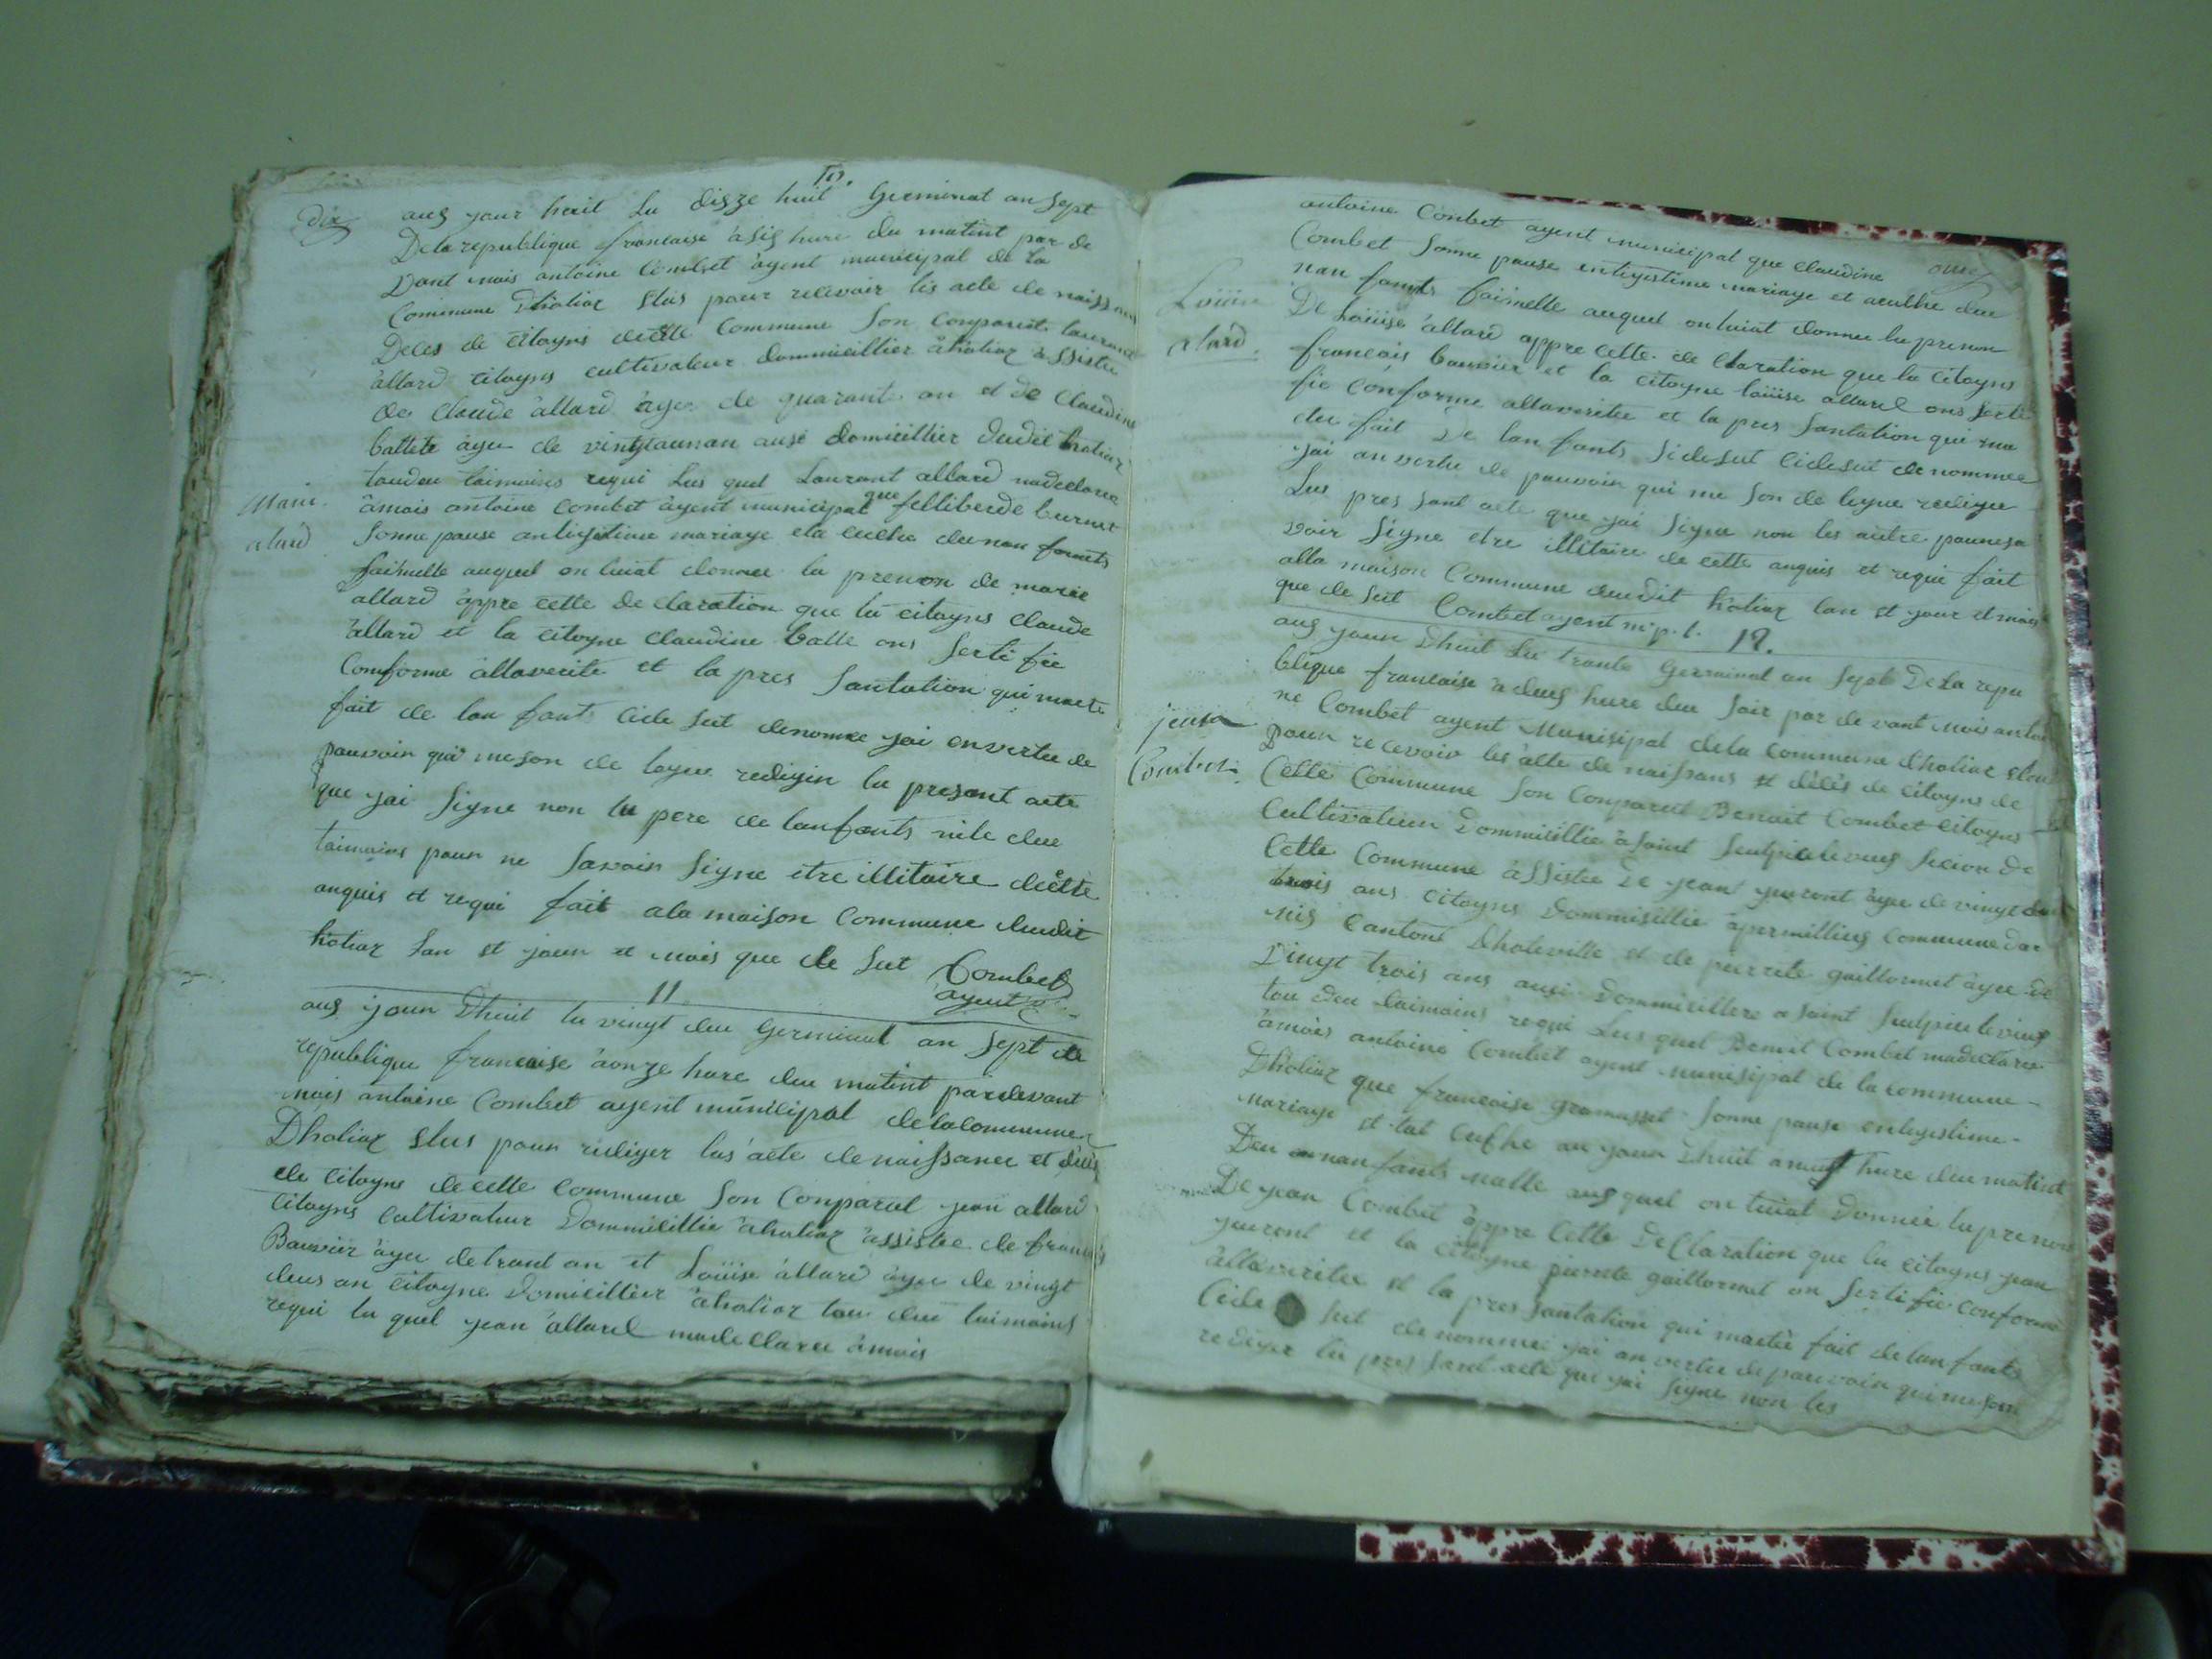 10.
dix
aug jour huit Lu disze huit Germinal an Sept
De la republique francaise à sis hure du matint par de
Dant mois antoine Combet agent municipal de la
Commune Dhotiaz Elus pour recevoir les acte de naissan
Deces de citoyns decette Commune Son Conparut laurant
allard citoyns cultivateur dommicillier à hotiaz assistee
de Claude allard agee de quarant an et de Claudine
battete agee de aussi domicillier dudit hotiaz
toudeu taimoins requi Lus quel Laurant allard madeclaree
Marie
alard
àmois antoine Combet agent municipal que felliberde burnet
Sonne pause antigitime mariage eta cuche du nan fants
faimelle auquel on luiat donnee lu prenon de marie
allard appre cette de claration que lu citoyns Claude
allard et la citoyne claudine balle ons Serti fie
Comforme allaverite et la pres Santation qui maete
fait de lan fant cide sut denomee jai envertu de
pouvoin qui me son de legue redigin lu present acte
que jai Signe non lu pere de lanfants nile deu
taimoins pour ne Savoir Signe etre illitaire decette
anquis et requi fait a la maison Commune dudit
hotiaz Lan et jour et mois que de Sut Combet
agent
11
aug jour Dhuit lu vingt deu Germinal an Sept de
republique francaise àonze hure deu matint pardevant
mois antoine Combet agent municipal delacommune
Dhotiaz Elus pour rediger lus acte de naissance et déces
de citoyns decette Commune Son Comparut jean allard
Citoyns Cultivatur Dommicillie àhotiaz assistee de francois
Bouvier àgee detrant an et Loüise allard agee de vingt
deus an citoyne Domicillier àhotiaz tou deu taimoins
requi lu quel jean allard madeclaree àmois
onze
antoine Combet agent municipal que Claudine
Combet Sonne pause entigistime mariage et acuthe due
Loüise
alard
nan fants faimelle auquel onluiat donnee lu prenon
De Loüise allard appre cette de claration que lu citoyns
francois bouvier et la citoyne loüise allard ons Serti
fie Conforme allaveritee et la pres Santation qui ma
etee fait De lan fants Sidesut cidesut denommee
jai an vertu de pouvoin qui me Son de legue redigee
Lus pres Sant acte que jai Signe non les autre pournesa
voir Signe etre illitaire de cette anquis et requi fait
alla maison Commune dudit hotiaz lan et jour et mois
que de Sut Combet agent m.p.l.
12.
aug jour Dhuit Lu trante Germinal an Sept De La repu
blique francaise à deus hure deu Soir par de vant mois antoi
jean
Combet
ne Combet agent Munisipal dela Commune dhotiaz
pour recevoir les acte de naissans et décés de citoyns de
Cette Commune Son Comparut Benoit Combet Citoyns
Cultivateur Dommicillie à Saint Sulpice levieux Secion de
Cette Commune àssistee De jean agee de vingt
trois ans Citoyns Dommisillie àpermillieug Commune dar
nis Canton Dhoteville et de pierrete guillormet agee de
Vingt trois ans ausi Dommicillere a Saint Sulpice levieux
tou deu taimoins requi Lus quel Benoit Combet madeclaree
àmois antoine Combet agent munisipal de la Commune
Dhotiaz que francaise gromasset Sonne pause entegistime
Mariage et au jour Dhuit a neuf hure deu matint
Deu nan fants malle auquel on luiat Donnee lu prenon
De jean Combet appre Cette Declaration que lu citoyns jean
et la citoyne pierrete guillormet on Serti fie conforme
àllaveritee et la pres Santation qui maetee fait delanfants
Cide Sut denommee jai an vertu de pouvoin qui meson
rediger lu pres Sant acte que jai Signe non les